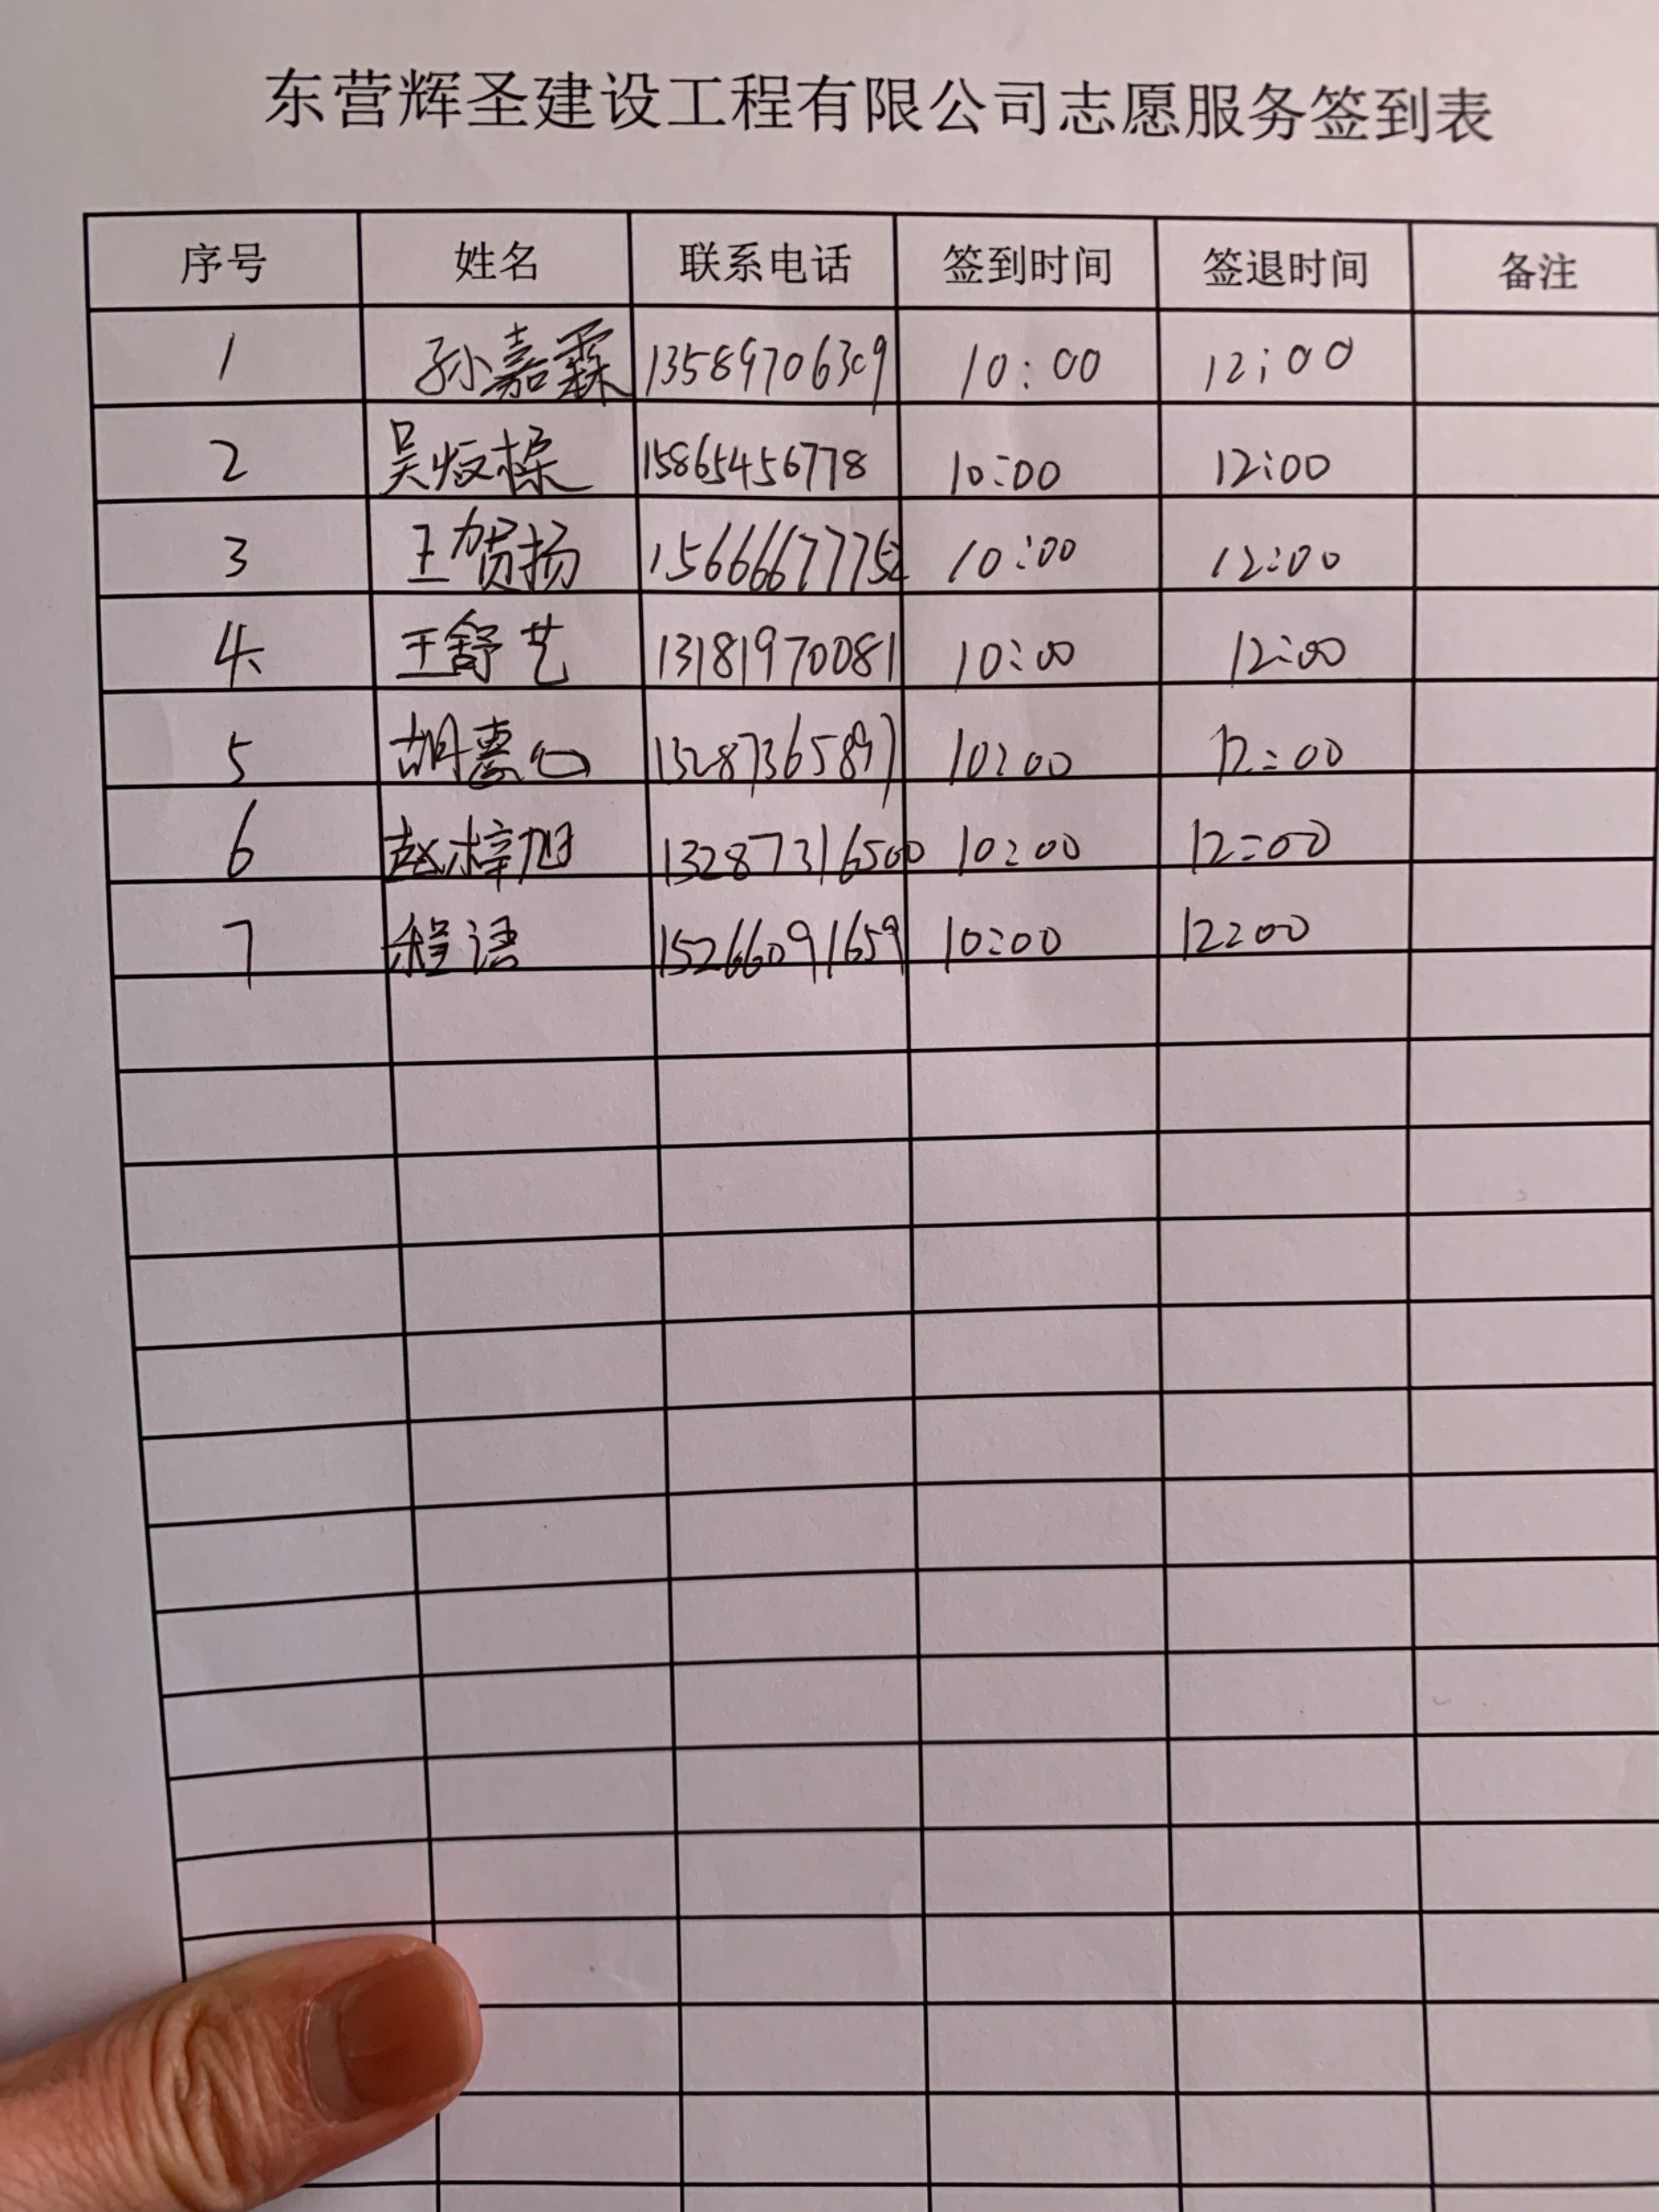 东营辉圣建设工程有限公司志愿服务签到表
序号 姓名 联系电话 签到时间 签退时间 备注
1 孙嘉霖 13589706309 10:00 12:00
2 吴 15865456778 10:00 12:00
3 王贺扬 15666677752 10:00 12:00
4 王舒艺 13181970081 10:00 12:00
5 胡惠心 15287365897 10:00 12:00
6 赵梓旭 13287316500 10:00 12:00
7 程语 15266091659 10:00 12:00